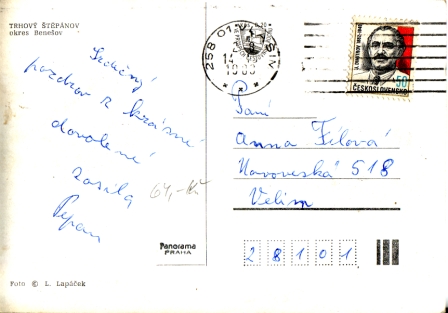 TRHOVÝ ŠTĚPÁNOV
okres Benešov
Srdečný
pozdrav z krásné
dovolené
zasílá
Pepan
64,- Kč
Panorama
PRAHA
Foto © L. Lapáček
258 01
14.
ČESKOSLOVENSKO
50
Paní
Anna Fílová
Novoveská 518
Velim
28101